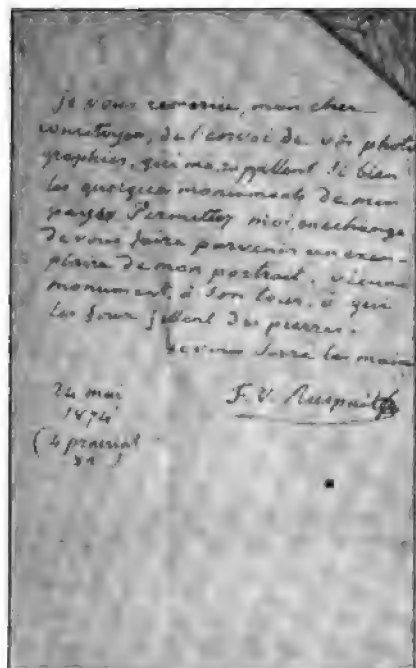 Je vous remercie, mon cher
concitoyen, de l'envoi de vos photo
graphies, qui me rappellent si bien
les quelques monuments de mon
pays. Permettez moi, en échange
de vous faire parvenir un exem-
plaire de mon portrait, vieux
monument, à son tour, à qui
les jours des pierres.
Je vous serre la main
F. V. Raspail
24 mai
1874
(4 prairial
)